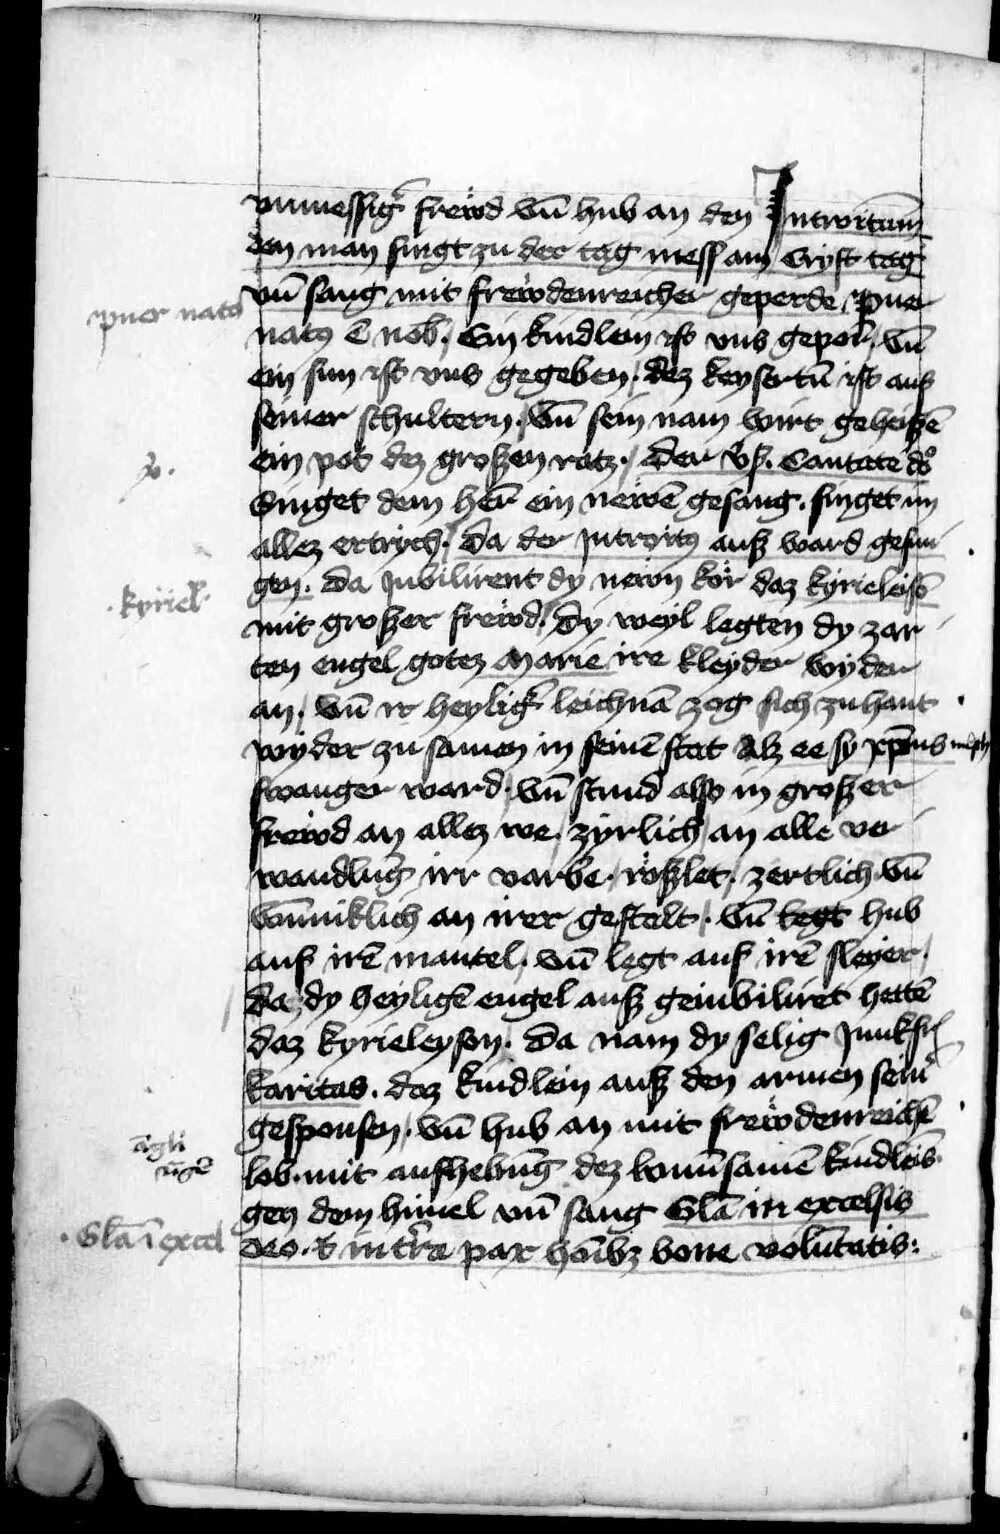 vnmessigͤ frewͤd vn̄ hub an den Introitum
den man singt zu der tag mess am Crist tag
vn̄ sang mit frewͤdenreicher geperde Puer
puer natꝰ
natꝰ ē nob̄. Ein kindlein ist vns geporn̄. vn̄
ein sun ist vns gegeben. dez keysertū ist auf
seiner schultern. Vn̄ sein nam wirt geheiʒʒē
ein pot dez groʒʒen ratz. Der Vs̄. Cantate dō
v̄.
Singet dem her̄ ein newē gesang. singet im
allez ertrych. Da der Introitꝰ auʒʒ ward gesun
gen. Da Jubilirent dy newn kör daz kyrieleisō
kyriel̄
mit groʒʒer frewͤd. Dy weyl legten dy zar
ten engel gotez Marie ire kleyder wyder
an. Vn̄ ir heyligͤ leichnā zog sich zuhant
wyder zu samen in seinē stat Alz ee sy xp̄ens
swanger ward. Vn̄ stund also in groʒʒer
frewͤd an allez we. zyrlich an alle ver
wandlūg irr varbe. röʒʒlet. zertlich vn̄
wunniklich an irer gestelt. Vn̄ legt hub
auf irē mantel. vn̄ legt auf irē sleyer.
Da dy heyligē engel auʒʒ geiubiliret hettē
daz kyrieleyson. Da nam dy selig Junkfr̄
karitas. daz kindlein auʒʒ den armen seinͤ
gesponsen. Vn̄ hub an mit frewͤdenreichē
āgli
lob. mit aufhebūg dez wunsamē kindleīs
gen dem himel vn̄ sang Gl̄a in excelsis
Gl̄a ī excel
deo. ⁊ in tr̄ra pax hōibꝫ bone volūtatis: